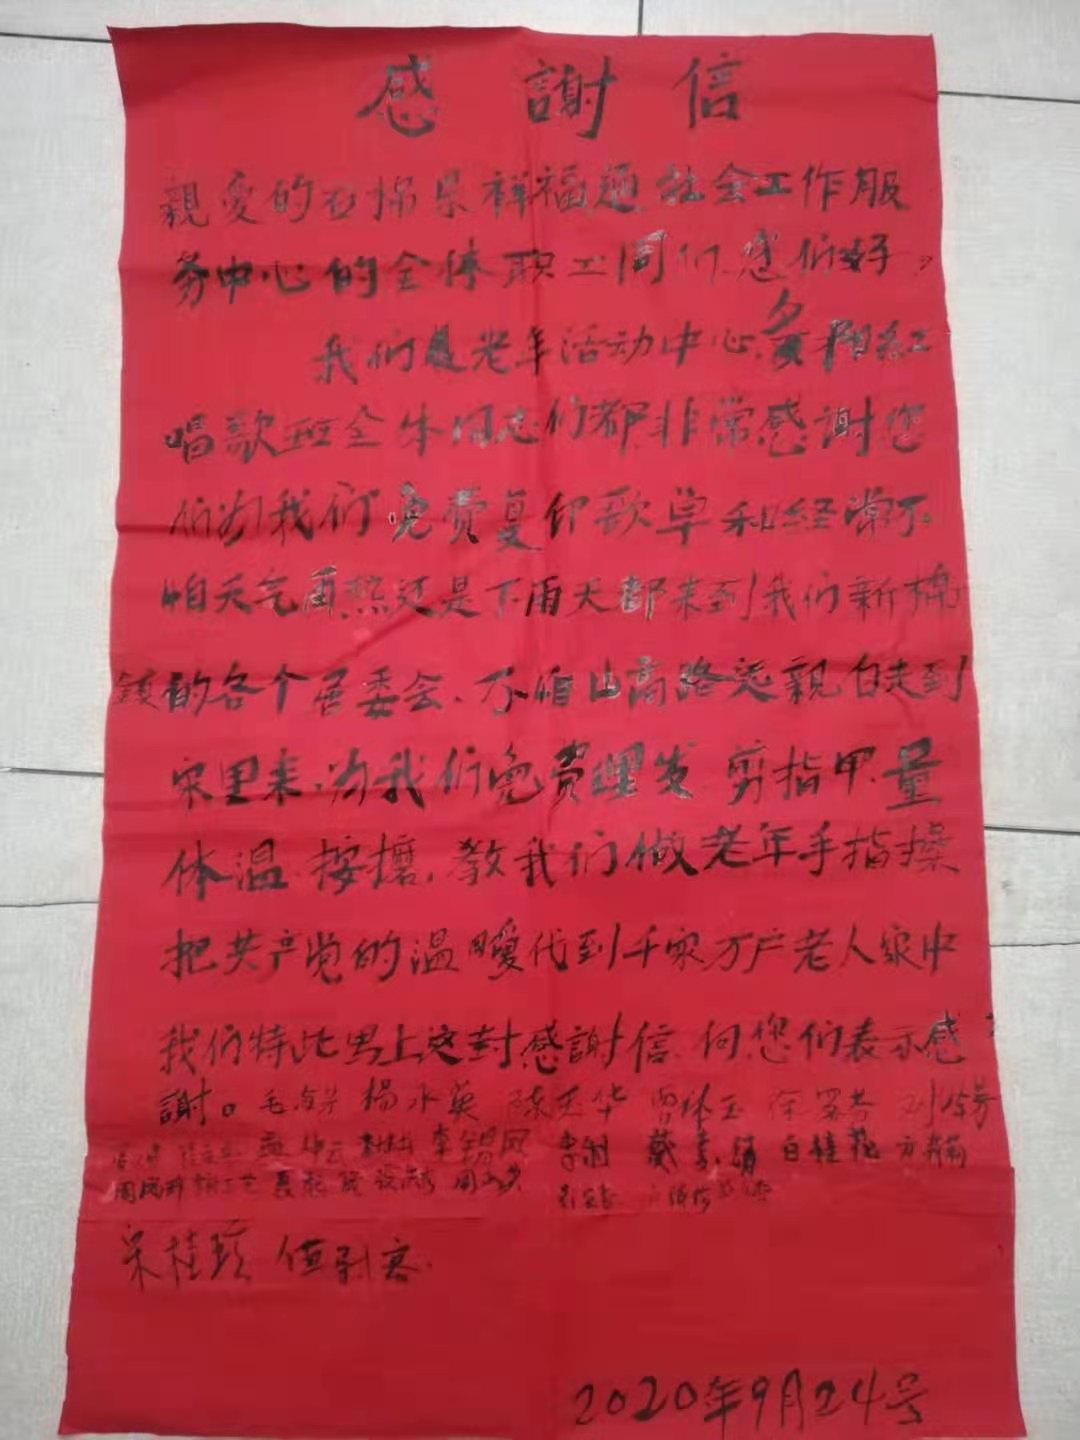 感謝信
親爱的石棉吴祥福通社会工作服
务中心的全体职工同们您们好,
我们是老年活动中心夕阳红
唱歌班全体同志们都非常感謝您
们为我们免费复印歌单和经常不
怕天气再热还是下雨天都来到我们新棉
鎮的各个居委会、不怕山高路远親自走到
家里来,为我们免费理发剪指甲量
体温按擦,教我们做老年手指操
把共产党的温暖代到千家万户老人家中
我们特此写上这封感謝信向您们表示感
謝。楊水英 陈玉华
李錫凤 戴素娟 白桂花
宋桂珍
2020年9月24号